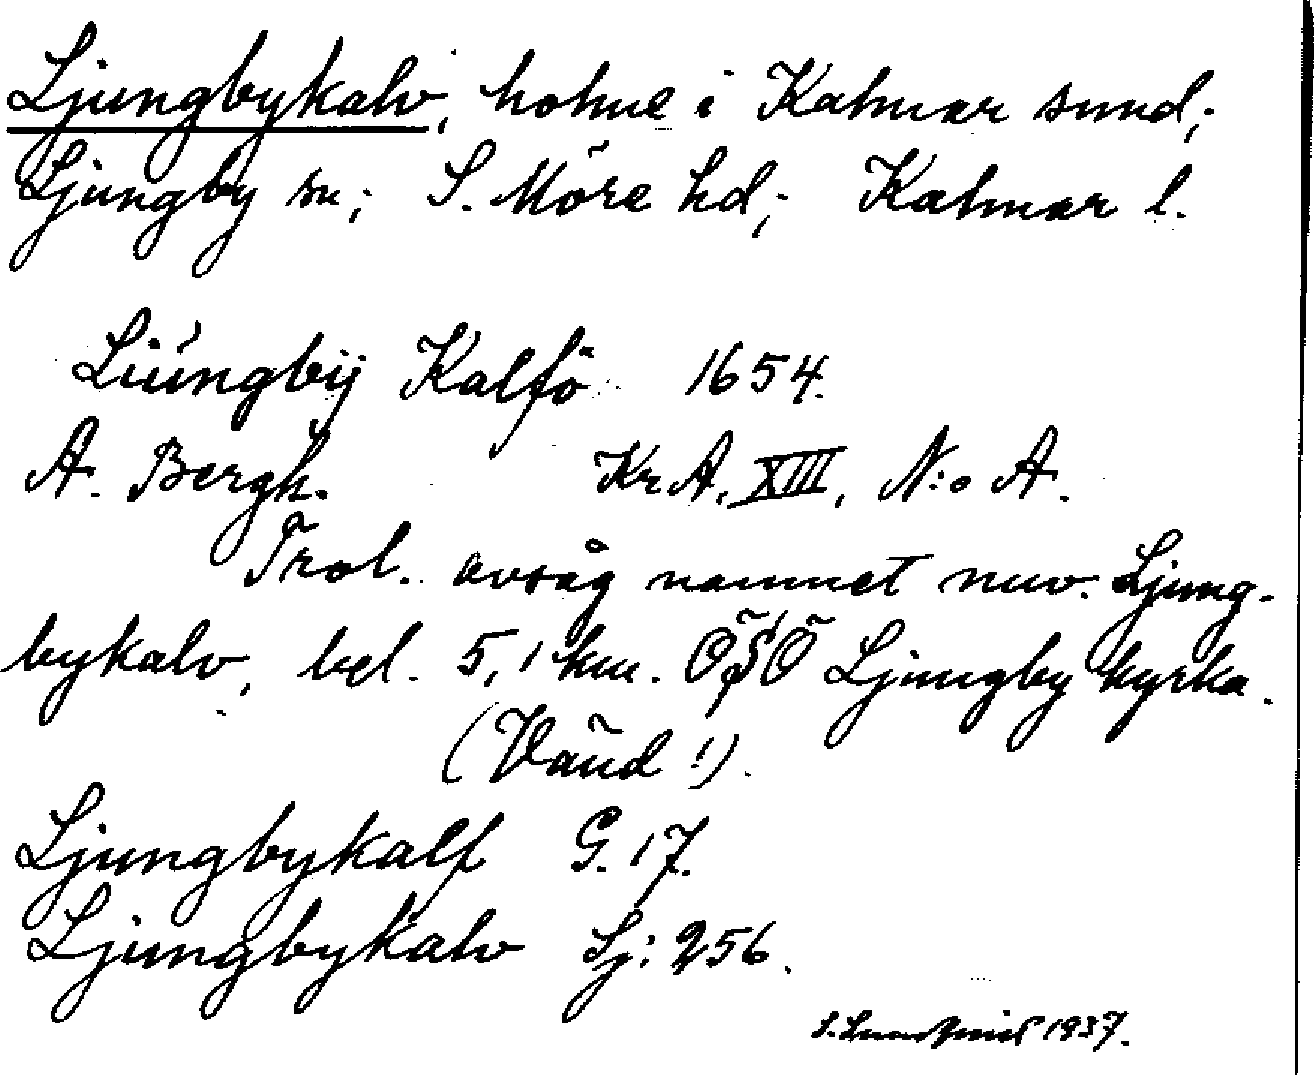 Ljungbykalv, holme i Kalmar sund;
Ljungby sn; S. Möre hd; Kalmar l.
Liúngbÿ Kalfö 1654.
A. Bergh. KrA, XIII, N:o A.
Trol. avsåg namnet nuv. Ljung-
bykalv, bel. 5,1 km. ÖSÖ Ljungby kyrka.
(Vänd!).
Ljungbykalf G. 17.
Ljungbykalv Sj: 256.
S. 1937.